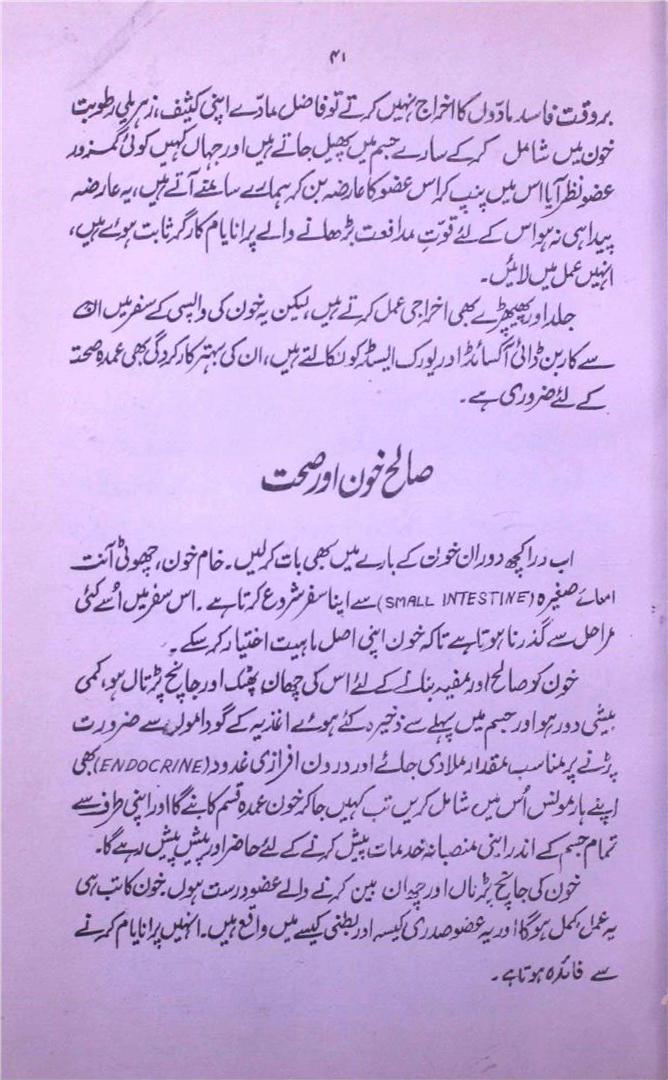 ۴۱
بروقت فاسد مادّوں کا اخراج نہیں کرتے تو فاضل مادّے اپنی کثیف، زہریلی رطوبت
خون میں شامل کرکے سارے جسم میں پھیل جاتے ہیں اور جہاں کہیں کوئی کمزور
عضو نظر آیا اس میں پنپ کر اس عضو کا عارضہ بن کر ہمارے سامنے آتے ہیں، یہ عارضہ
پیدا ہی نہ ہو اس کے لئے قوّتِ مدافعت بڑھانے والے پرانایام کارگر ثابت ہوئے ہیں،
انہیں عمل میں لائیں۔
جلد اور پھیپھڑے بھی اخراجی عمل کرتے ہیں، لیکن یہ خون کی واپسی کے سفر میں ان
سے کاربن ڈائی آکسائڈ اور یورک ایسڈ کو نکالتے ہیں، ان کی بہتر کارکردگی بھی عمدہ صحت
کے لئے ضروری ہے۔
صالح خون اور صحت
اب ذرا کچھ دوران خون کے بارے میں بھی بات کرلیں۔ خام خون، چھوٹی آنت
امعائے صغیرہ (SMALL INTESTINE) سے اپنا سفر شروع کرتا ہے۔ اس سفر میں اُسے کئی
مراحل سے گذرنا ہوتا ہے تاکہ خون اپنی اصل ماہیت اختیار کرسکے۔
خون کو صالح اور مفید بنانے کے لئے اس کی چھان پھٹک اور جانچ پڑتال ہو، کمی
بیشی دور ہو اور جسم میں پہلے سے ذخیرہ کئے ہوئے اغذیہ کے گوداموں سے ضرورت
پڑنے پر مناسب مقدار ملادی جائے اور درون افرازی غدود (ENDOCRINE) بھی
اپنے ہارمونس اُس میں شامل کریں تب کہیں جاکر خون عمدہ قسم کا بنے گا اور اپنی طرف سے
تمام جسم کے اندر اپنی منصبانہ خدمات پیش کرنے کے لئے حاضر اور پیش پیش رہے گا۔
خون کی جانچ پڑتال اور چھان بین کرنے والے عضو درست ہوں۔ خون کا تب ہی
یہ عمل مکمل ہوگا اور یہ عضو صدری کیسہ اور بطنی کیسے میں واقع ہیں۔ انہیں پرانایام کرنے
سے فائدہ ہوتا ہے۔